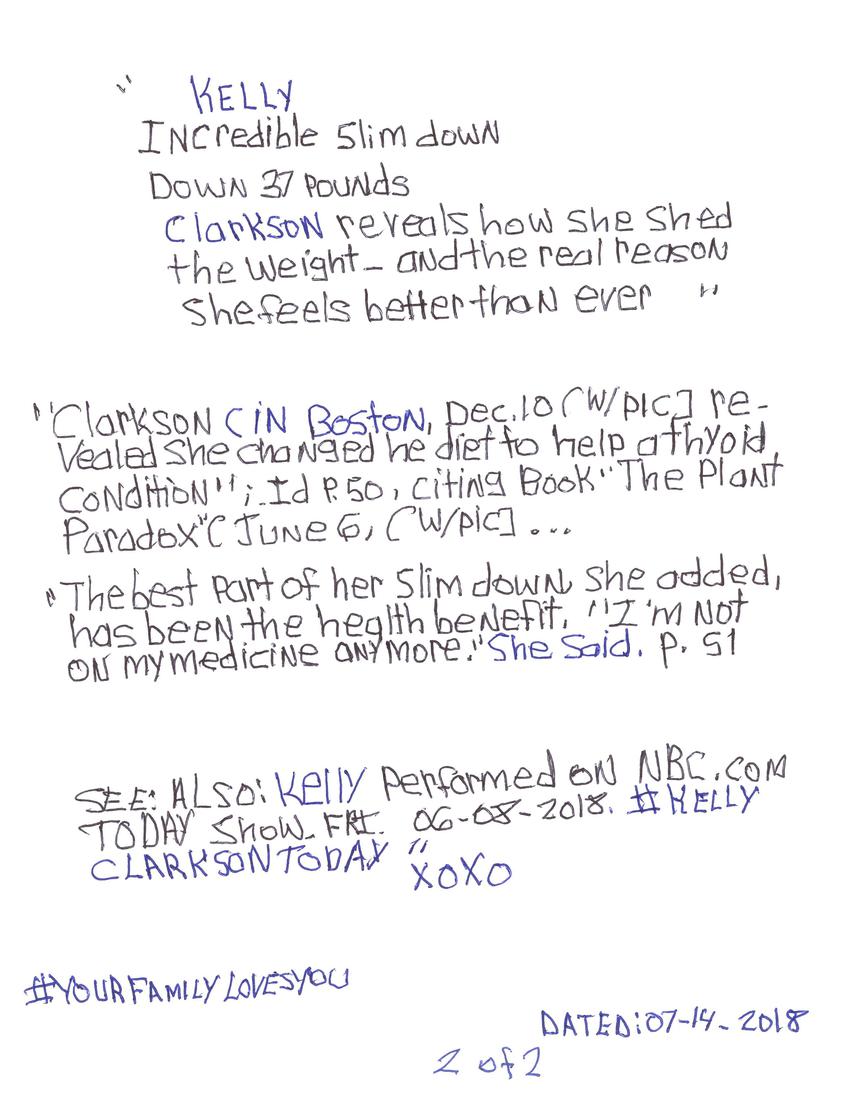 " KELLY
INCredible Slim down
DOWN 37 POUNDS
Clarkson reveals how she shed
the weight - and the real reason
She feels better than ever "
"Clarkson CIN Boston, Dec. 10 [W/pic] re-
Vealed She changed he diet to help a thyoid
CONDITION"; Id P. 50, citing Book "The Plant
Paradox" ( JUNE 6, [W/pic] ...
"The best part of her Slim down, She added,
has been the heglth benefit. "I'm Not
ON my medicine anymore." She Said. P. 51
SEE: ALSO: Kelly Performed on NBC.COM
TODAY Show. FRI. 06-08-2018. #KELLY
CLARKSONTODAY " XOXO
#YOURFAMILYLOVESYOU
DATED: 07-14-2018
2 of 2